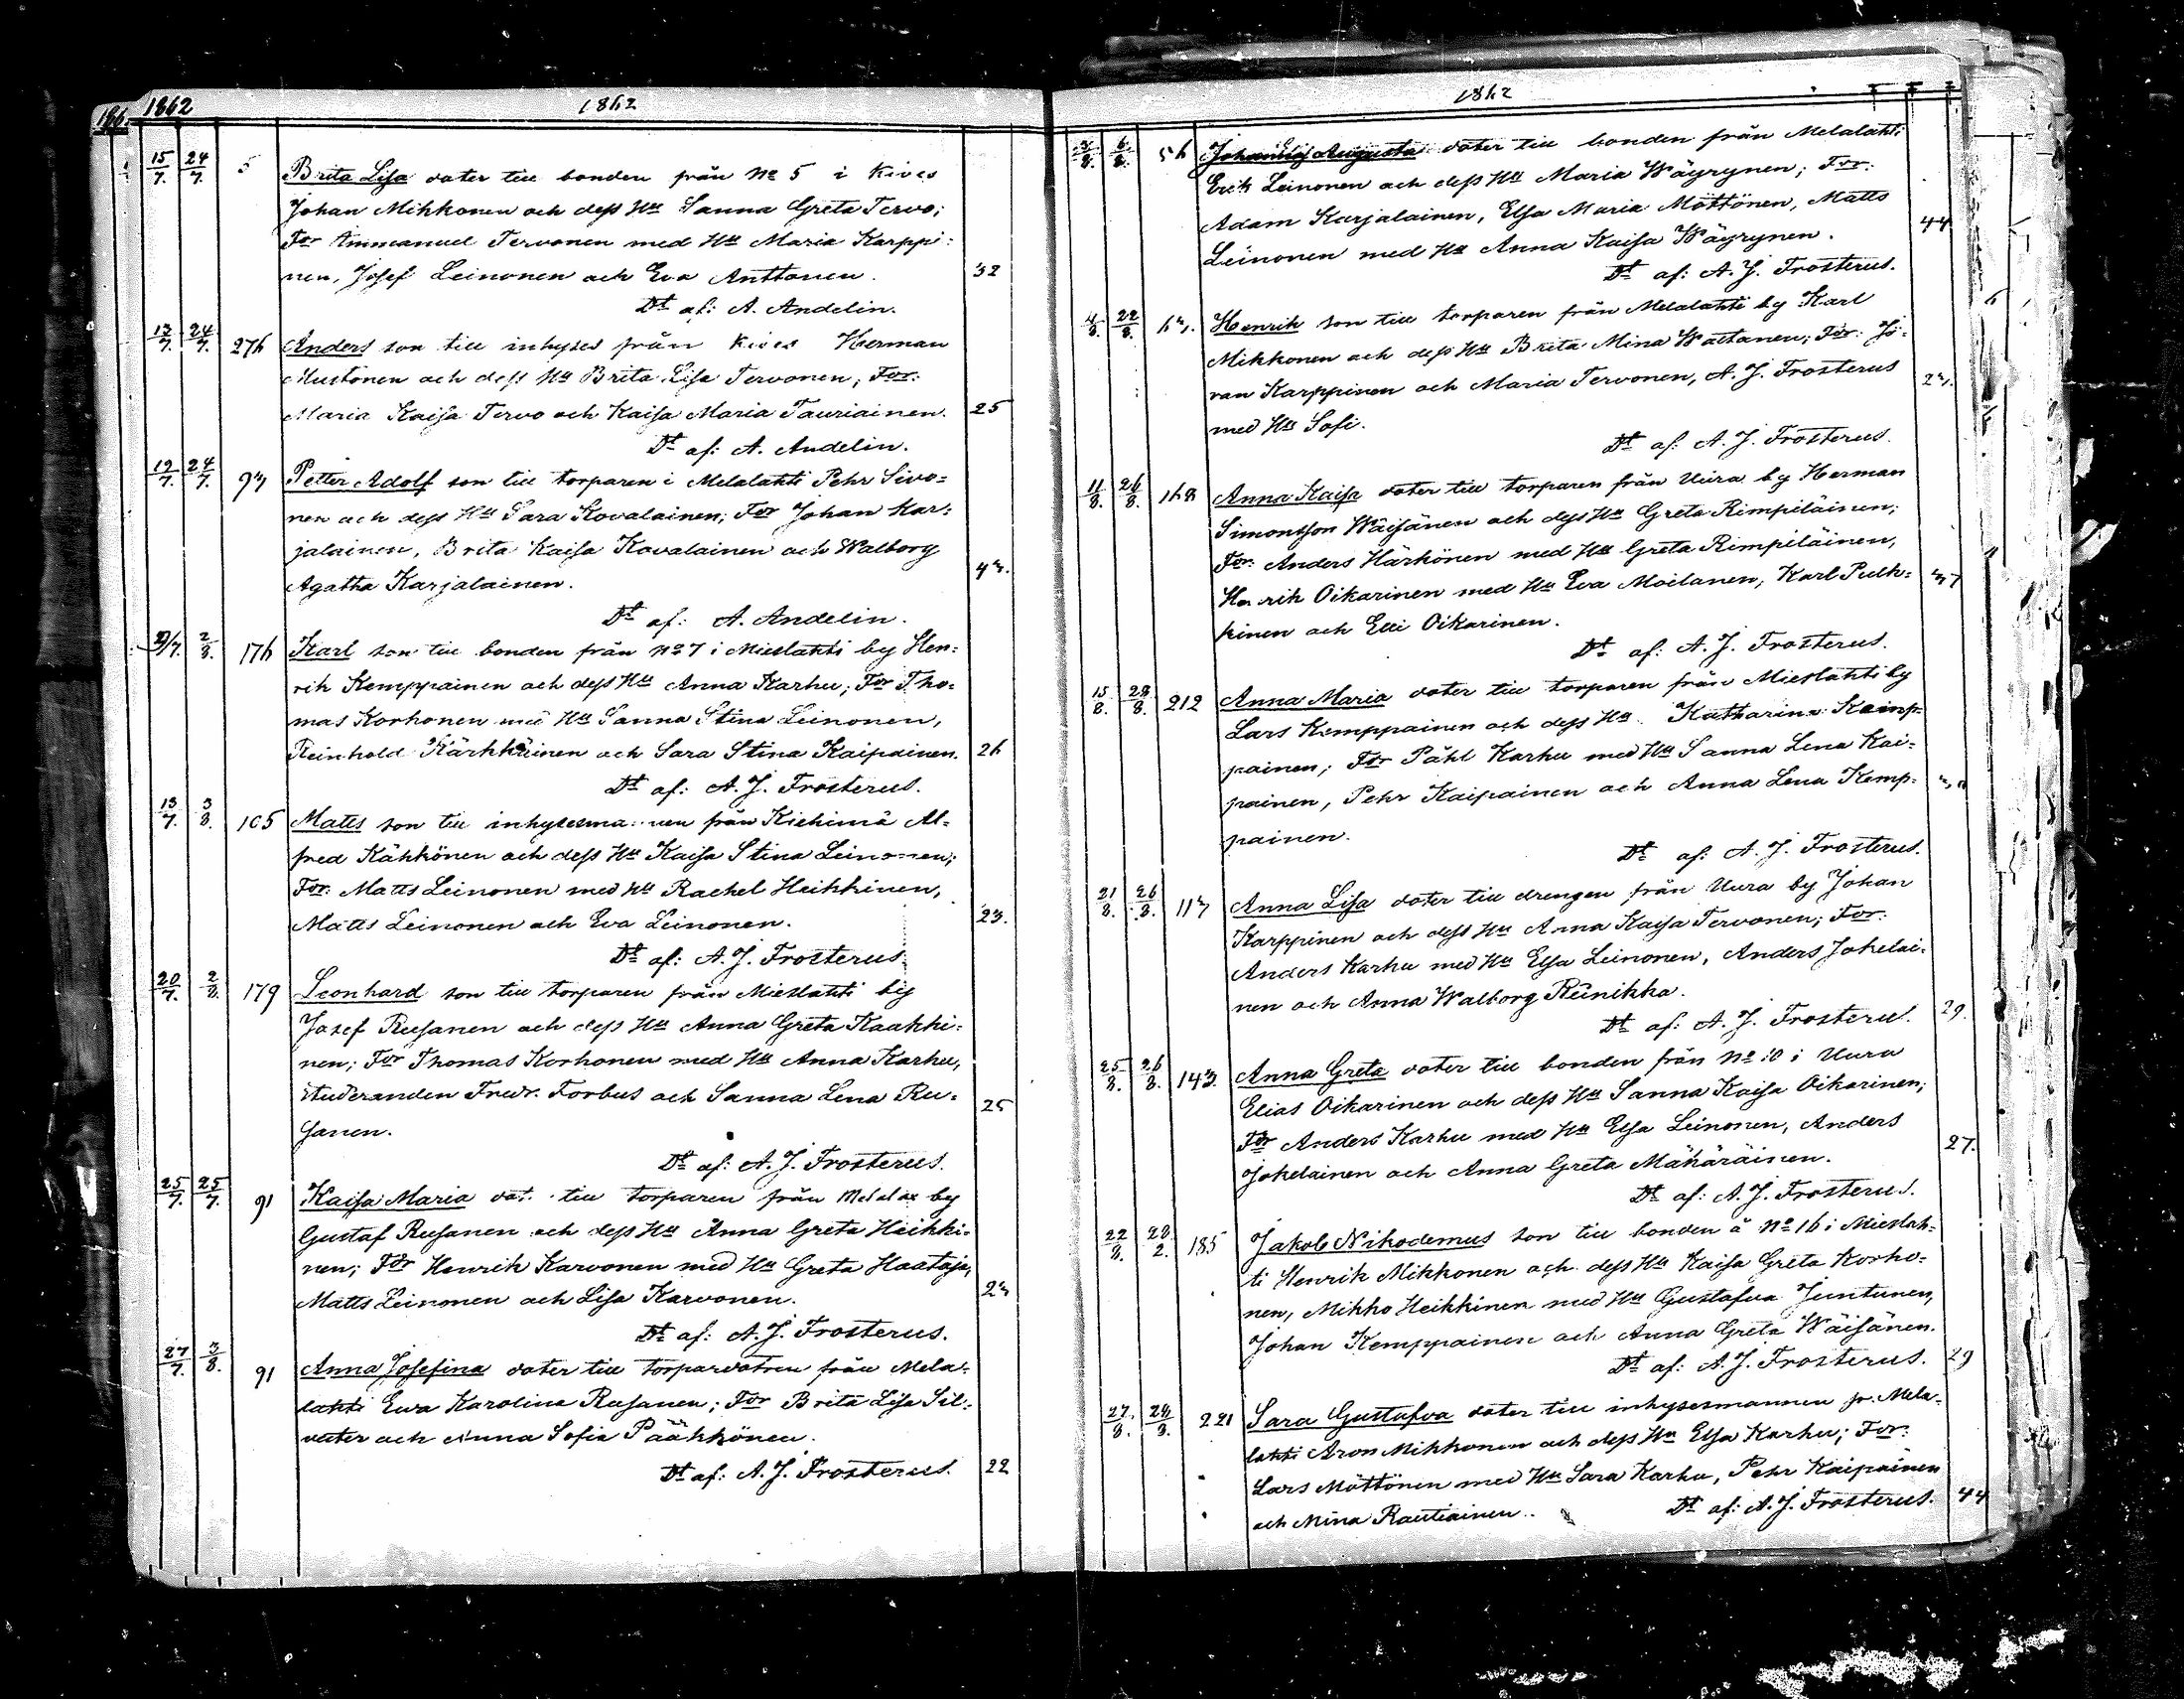 186. 1862
1862
15/7. 24/7. 5 Brita Lisa dater till bonden från No 5 i Kives
Johan Mikkonen och dess Hu Sanna Greta Tervo;
For Immanuel Tervonen med Hu Maria Karppi-
nen, Josef Leinonen och Eva Anttonen. 32
Dt af: A. Andelin.
24/7. 276 Anders son till inhyses från Kives Herman
Mustonen och dess Hu Brita Lisa Tervonen; For:
Maria Kaisa Tervo och Kaisa Maria Tauriainen. 25
Dt af: A. Andelin.
24/7. Petter Adolf son till torparen i Melalahti Pehr Sivo-
nen och dess Hu Sara Kovalainen; For Johan Kar-
jalainen, Brita Kaisa Kovalainen och Walborg
Agatha Karjalainen.
Dt af: A. Andelin.
2/8. 176 Karl son till bonden från No 7 i Mieslahti by Hen-
rik Kemppainen och dess Hu Anna Karhu; For Tho-
mas Korhonen med Hu Sanna Stina Leinonen,
Reinhold Kärkkäinen och Sara Stina Kaipainen. 26
Dt af: A. J. Frosterus.
13/7. 3/8. 105 Matts son till inhysesmannen från Kiehimä Al-
fred Kähkönen och dess Hu Kaisa Stina Leinonen;
For: Matts Leinonen med Hu Rachel Heikkinen,
Matts Leinonen och Eva Leinonen. 23.
Dt af: A. J. Frosterus.
20/7. 2/8. 179 Leonhard son till torparen från Mieslahti by
Josef Rusanen och dess Hu Anna Greta Kaakki-
nen; For Thomas Korhonen med Hu Anna Karhu,
Studeranden Fredr. Forbus och Sanna Lena Ru-
sanen. 25
Dt af: A. J. Frosterus.
25/7. 25/7. 91 Kaisa Maria dat. till torparen från Melalax by
Gustaf Rusanen och dess Hu Anna Greta Heikki-
nen; For Henrik Karvonen med Hu Greta Haataja,
Matts Leinonen och Lisa Karvonen.
Dt af: A. J. Frosterus.
27/7. 3/8. 91 Anna Josefina dater till torpardotren från Mela-
lahti Ewa Karolina Rusanen; For Brita Lisa Sil-
vater och Anna Sofia Pääkkönen.
Dt af: A. J. Frosterus. 22
1862
6/8. 56 Augusta dater till bonden från Melalahti
Erik Leinonen och dess Hu Maria Wäyrynen; For:
Adam Karjalainen, Elsa Maria Möttönen, Matts
Leinonen med Hu Anna Kaisa Wäyrynen. 44
Dt af: A. J. Frosterus.
4/8. 22/8. Henrik son till torparen från Melalahti by Karl
Mikkonen och dess Hu Brita Mina Waltanen; For: Jö-
ran Karppinen och Maria Tervonen, A. J. Frosterus
med Hu Sofi.
Dt af: A. J. Frosterus.
11/8. 26/8. 168 Anna Kaisa dater till torparen från Uura by Herman
Simonsson Wäisänen och dess Hu Greta Rimpiläinen;
For: Anders Härkönen med Hu Greta Rimpiläinen,
Henrik Oikarinen med Hu Eva Moilanen, Karl Pulk-
kinen och Elli Oikarinen.
Dt af: A. J. Frosterus.
15/8. 28/8. 212 Anna Maria dater till torparen från Mieslahti by
Lars Kemppainen och dess Hu Katharina Kemp-
painen; For Påhl Karhu med Hu Sanna Lena Kai-
painen, Pehr Kaipainen och Anna Lena Kemp-
painen.
Dt af: A. J. Frosterus.
21/8. 26/8. Anna Lisa dater till drengen från Uura by Johan
Karppinen och dess Hu Anna Kaisa Tervonen; For:
Anders Karhu med Hu Elsa Leinonen, Anders Jokelai-
nen och Anna Walborg Reinikka.
Dt af: A. J. Frosterus. 29.
25/8. 26/8. 143. Anna Greta dater till bonden från No 10 i Uura
Elias Oikarinen och dess Hu Sanna Kaisa Oikarinen;
For Anders Karhu med Hu Elsa Leinonen, Anders
Jokelainen och Anna Greta Mähäräinen. 27.
Dt af: A. J. Frosterus.
22/8. 28/2. 185 Jakob Nikodemus son till bonden å No 16 i Mieslah-
ti Henrik Mikkonen och dess Hu Kaisa Greta Korho-
nen, Mikko Heikkinen med Hu Gustafva Juntunen,
Johan Kemppainen och Anna Greta Wäisänen.
Dt af: A. J. Frosterus. 29
27/8. 221 Sara Gustafva dater till inhysesmannen fr. Mela-
lahti Aron Mikkonen och dess Hu Elsa Karhu; For:
Lars Möttönen med Hu Sara Karhu, Pehr Kaipainen
och Mina Rautiainen. Dt af: A. J. Frosterus. 44